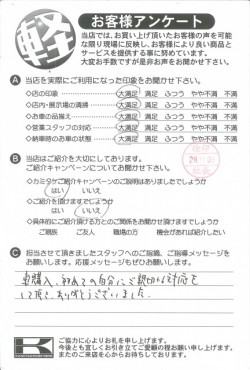 軽
お客様アンケート
当店では、お買い上げ頂いたお客様の声を可能
な限り現場に反映し、お客様により良い商品と
サービスを提供する事に努めています。
大変お手数ですが是非お声をお聞かせ下さい。
A 当店を実際にご利用になった印象をお聞かせ下さい。
◇店の印象 大満足 満足 ふつう やや不満 不満
◇店内・展示場の清掃 大満足 満足 ふつう やや不満 不満
◇お車の品揃え 大満足 満足 ふつう やや不満 不満
◇営業スタッフの対応 大満足 満足 ふつう やや不満 不満
◇納車時のお車の状態 大満足 満足 ふつう やや不満 不満
B 当店はご紹介を大切にしております。
ご紹介キャンペーンについてお聞かせ下さい。
◇カミタケご紹介キャンペーンのご説明はありましたでしょうか
はい いいえ
◇ご紹介を頂けますでしょうか
はい いいえ
◇具体的にご紹介頂ける方とのご関係をお聞かせ頂けますでしょうか
ご親族 ご友人 職場の方 機会があれば紹介したい
C 担当させて頂きましたスタッフへのご指摘、ご指導メッセージを
お願いします。応援メッセージもぜひお願いします。
車購入、初めての自分にご親切な対応を
して頂き、ありがとうございました。
K
ご協力に心よりお礼を申し上げます。
今後とも宜しくお引き立てご愛顧の程お願い申し上げます。
またのご来店を心からお待ちしております。